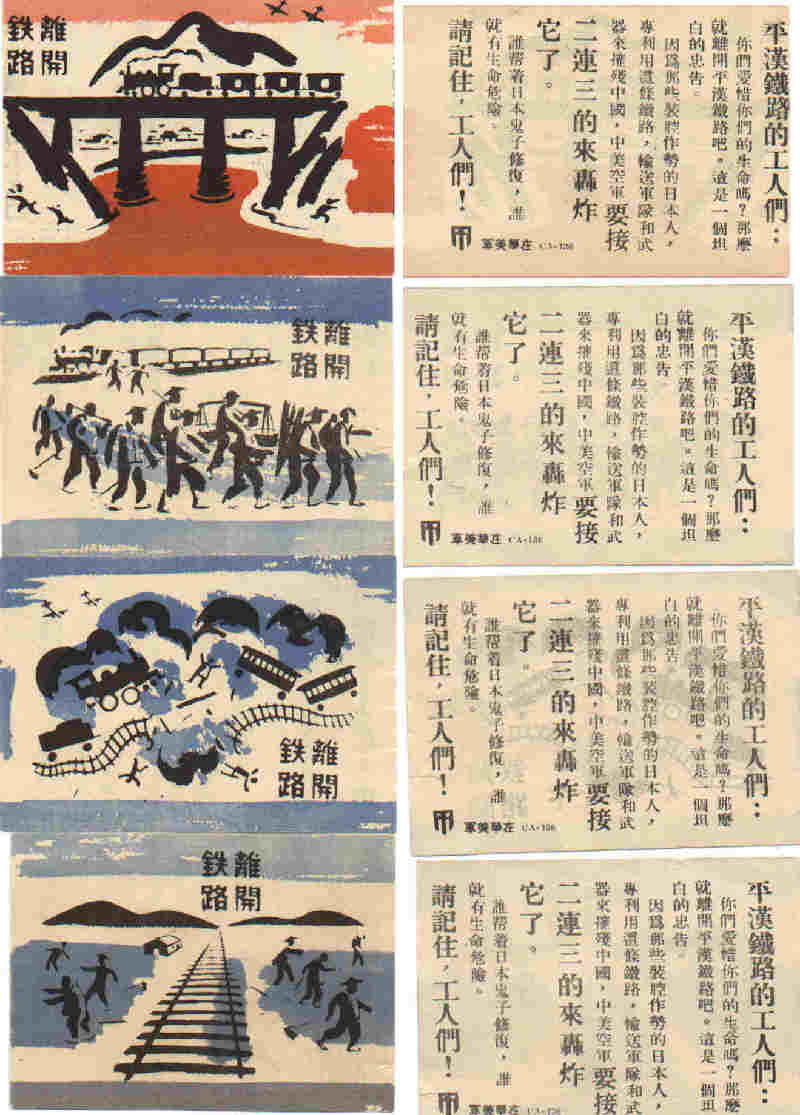 離開
鉄路
平漢鐵路的工人們：
你們愛惜你們的生命嗎？那麼
就離開平漢鐵路吧。這是一個坦
白的忠告。
因爲那些裝腔作勢的日本人，
專利用這條鐵路，輸送軍隊和武
器來摧殘中國，中美空軍要接
二連三的來轟炸
它了。
誰幫着日本鬼子修復，誰
就有生命危險。
請記住，工人們！
在華美軍 CA-136
離開
鉄路
平漢鐵路的工人們：
你們愛惜你們的生命嗎？那麼
就離開平漢鐵路吧。這是一個坦
白的忠告。
因爲那些裝腔作勢的日本人，
專利用這條鐵路，輸送軍隊和武
器來摧殘中國，中美空軍要接
二連三的來轟炸
它了。
誰幫着日本鬼子修復，誰
就有生命危險。
請記住，工人們！
在華美軍 CA-136
離開
鉄路
平漢鐵路的工人們：
你們愛惜你們的生命嗎？那麼
就離開平漢鐵路吧。這是一個坦
白的忠告。
因爲那些裝腔作勢的日本人，
專利用這條鐵路，輸送軍隊和武
器來摧殘中國，中美空軍要接
二連三的來轟炸
它了。
誰幫着日本鬼子修復，誰
就有生命危險。
請記住，工人們！
在華美軍 CA-136
離開
鉄路
平漢鐵路的工人們：
你們愛惜你們的生命嗎？那麼
就離開平漢鐵路吧。這是一個坦
白的忠告。
因爲那些裝腔作勢的日本人，
專利用這條鐵路，輸送軍隊和武
器來摧殘中國，中美空軍要接
二連三的來轟炸
它了。
誰幫着日本鬼子修復，誰
就有生命危險。
請記住，工人們！